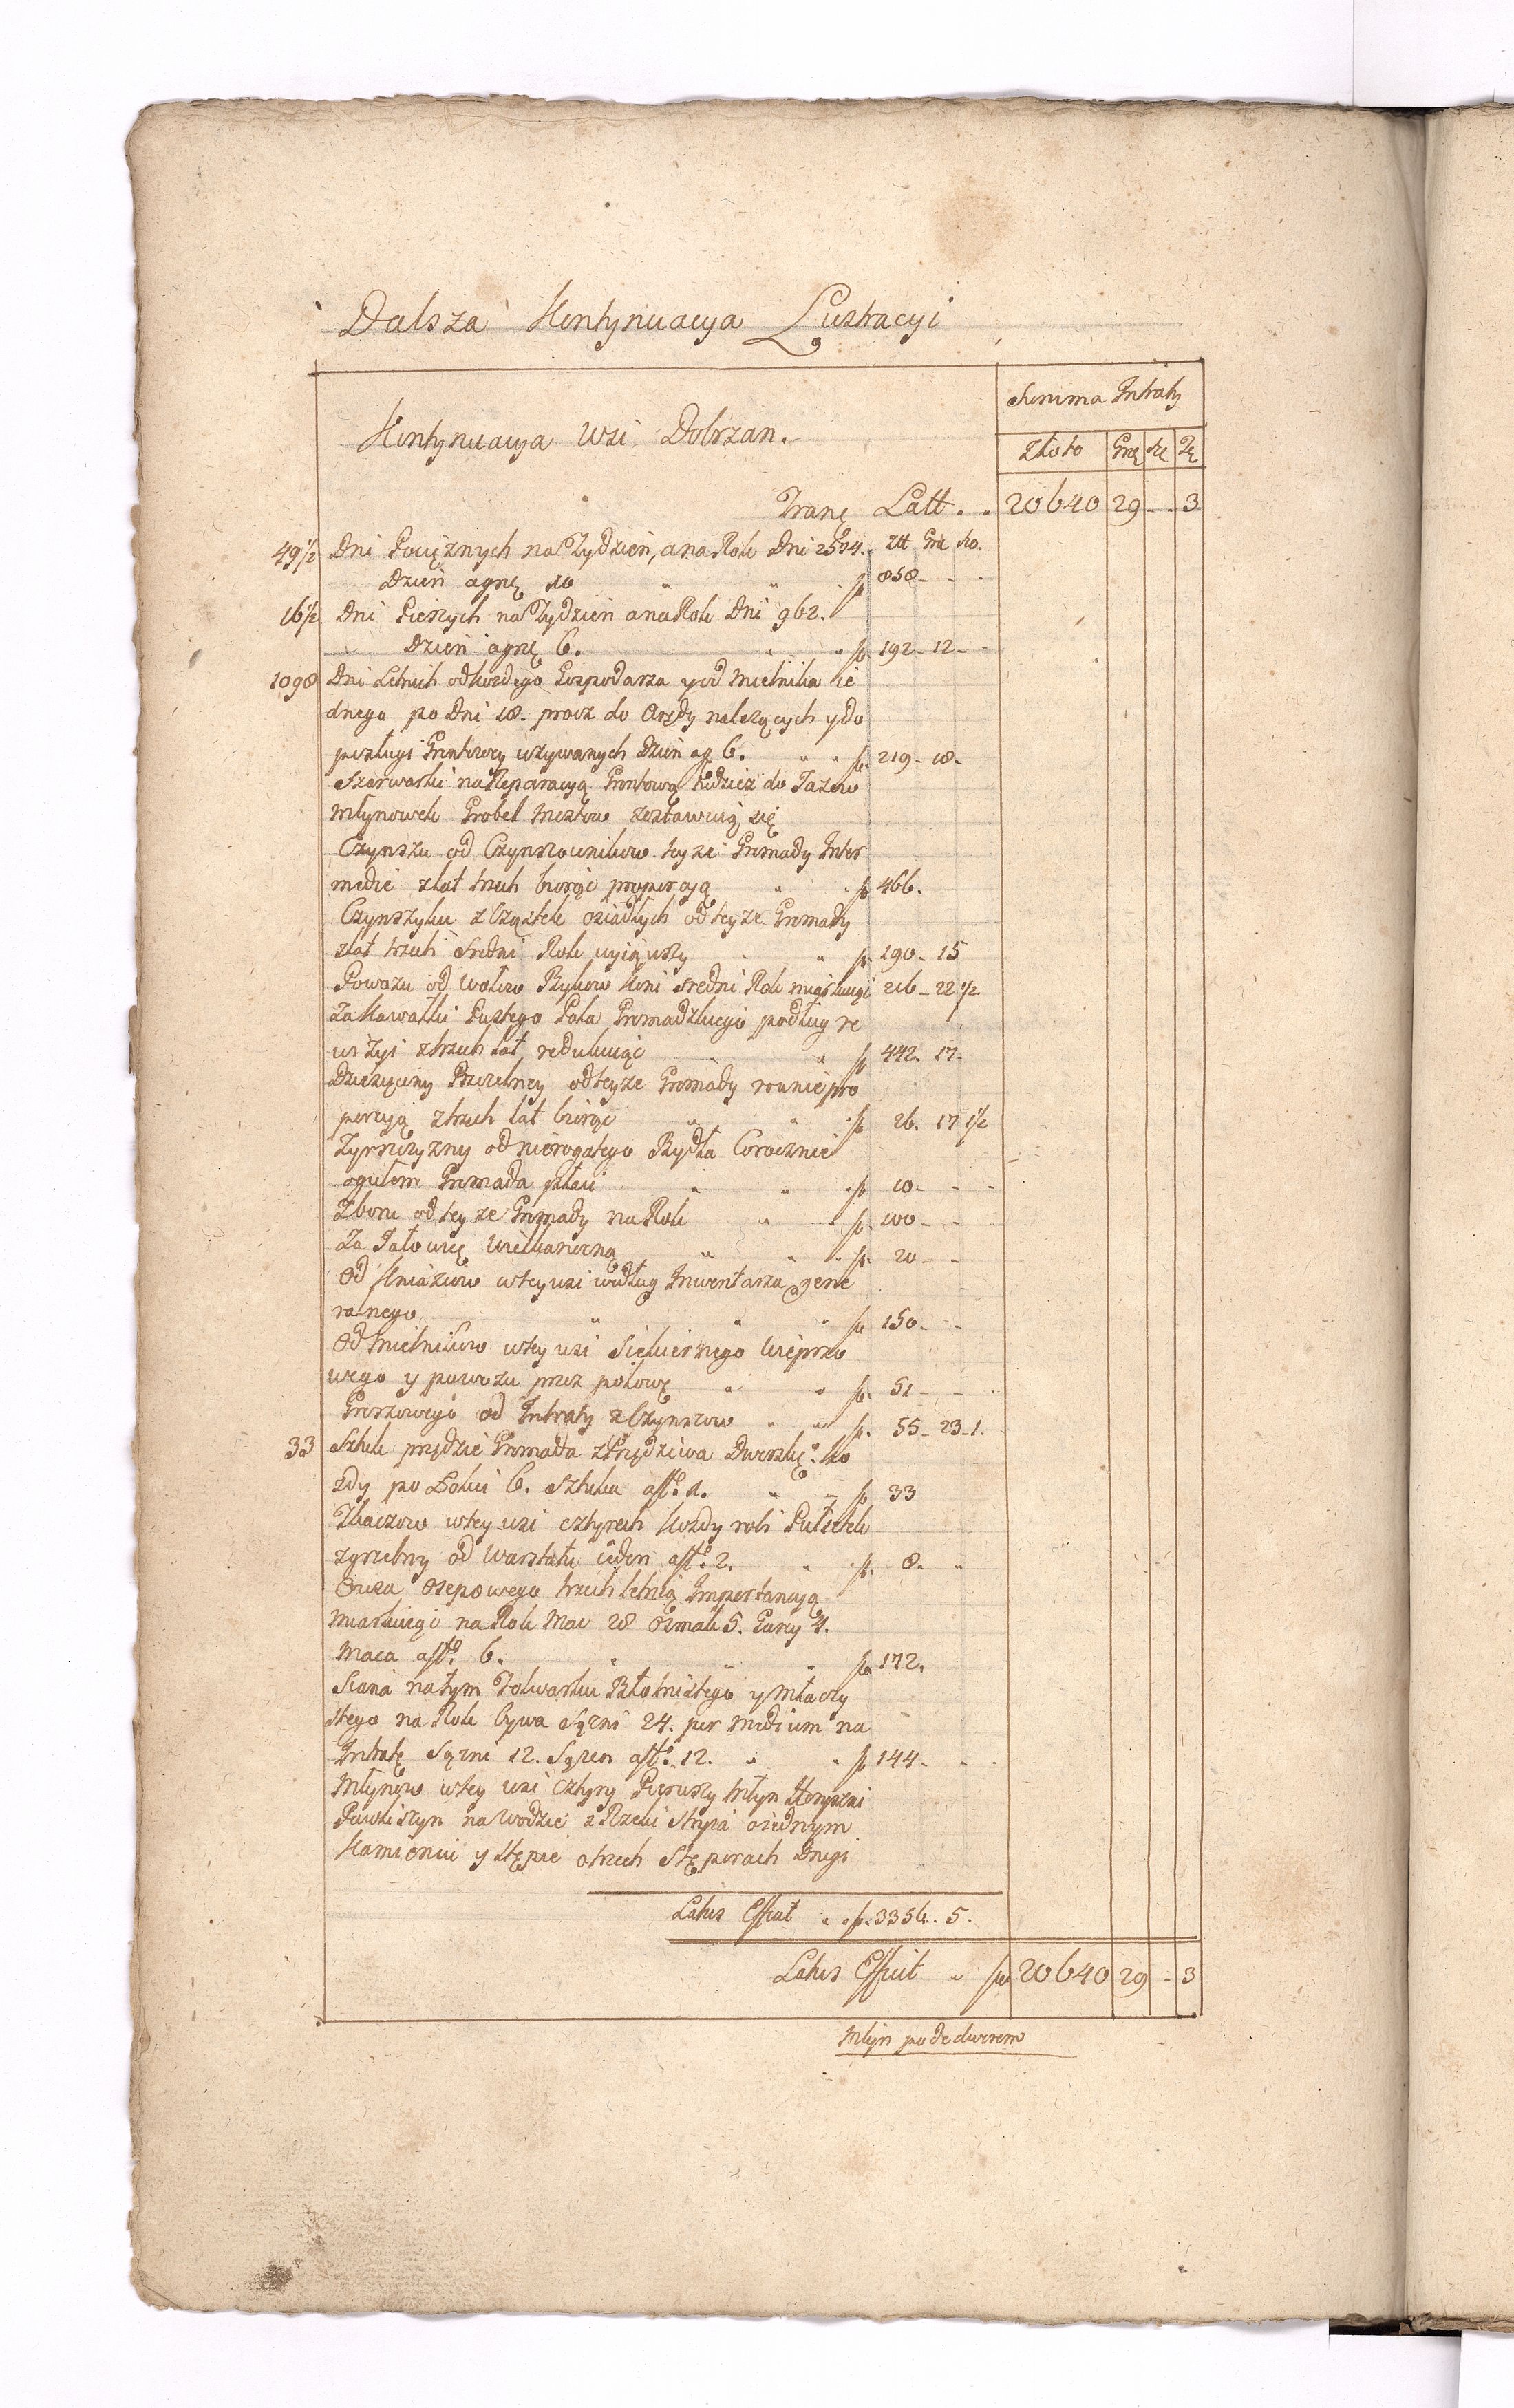 Dalsza Kontynuacya Lustracyi
Summa Intraty
Kontynuacya wsi Dobrzan.
Złoto Grę Sze
Tranę Latt. . 20640 29 - . 3
49 1/2 Dni Pociężnych na Tydzień, a na Rok Dni 2574. Złt Grę Sze.
Dzień a grę 10 " " . fl 858 - - .
16 1/2 Dni Pieszych na Tydzień a na Rok Dni 962.
Dzień a grę 6. " " fl. 192 - 12 - -
1098 Dni Letnich od kożdego Gospodarza y od Mielnika ie
dnego po Dni 18. procz do Arędy należących y do
posługi Gruntowey używanych dzień ag 6. " " fl. 219 - 18 -
Szarwarki na Reparacyą Gruntową tudzież do Tazów
Młynowek Grobel Mostow zostawuią się
Czynszu od Czynszownikow teyże Gromady Inter
medie z lat trzech biorąc proporcyą " . fl 466.
Czynszyku z Cząstek osiadłych od teyże Gromady
z lat trzech średni Rok wyiąwszy . " fl. 190 - 15
Powozu od Wołow Bykow Koni średni Rok miarkuiąc 216 - 22 1/2
Za Kawałki Pustego Pola Gromadzkiego podług re
wizyi z trzech lat redukuiąc . " fl 442 - 17 -
Dziesięciny Pszczelney od teyże Gromady rownie pro
porcyą z trzech lat biorąc " " . fl 26. 17 1/2
Żyrowszyzny od nierogatego Bydła Corocznie
ogułem Gromada płaci " " . fl 10 - - -
Zboru od teyże Gromady na Rok " " fl. 100 - -
Za Jałowię Wielkanocną " " . fl. 20 - -
Od Kniaziow w tey wsi według Inwentarza gene
ralnego " " " fl 150 - -
Od Mielnikow w tey wsi Siekiernego Wieprzo
wego y powozu prez połowę " " fl. 51 - - .
Groszowego od Intraty z Czynszow " " fl. 55 - 23 - 1.
33 Sztuk przędzie Gromada z Przędziwa Dworskie: ko
żdy po Łokci 6. Sztuka a flo 1. " - fl 33
Tkaczow w tey wsi cztyrech kożdy robi Pułsetek
zgrzebny od Warstatu ieden a flo 2. " . fl. 8. "
Owsa Osepowego trzech letnią Importancyą
miarkuięc na Rok Mac 28 Osmak 5. Garcy 4.
Maca a flo 6. " " " fl 172.
Siana na tym Folwarku Błotnistego y Młaczy
stego na Rok bywa Sążni 24. per medium na
Intratę Sążni 12. Sążen a flo 12. " " fl 144 - . .
Młynow w tey wsi Cztyry Pierwszy Młyn
na Wodzie z Rzeki Strypa o iednym
Kamieniu y Stępie o trzech Stęporach Drugi
Latus Efficit " " fl. 3356. 5.
Latus Efficit " fl 20640 29 - 3
Młyn pode dworem